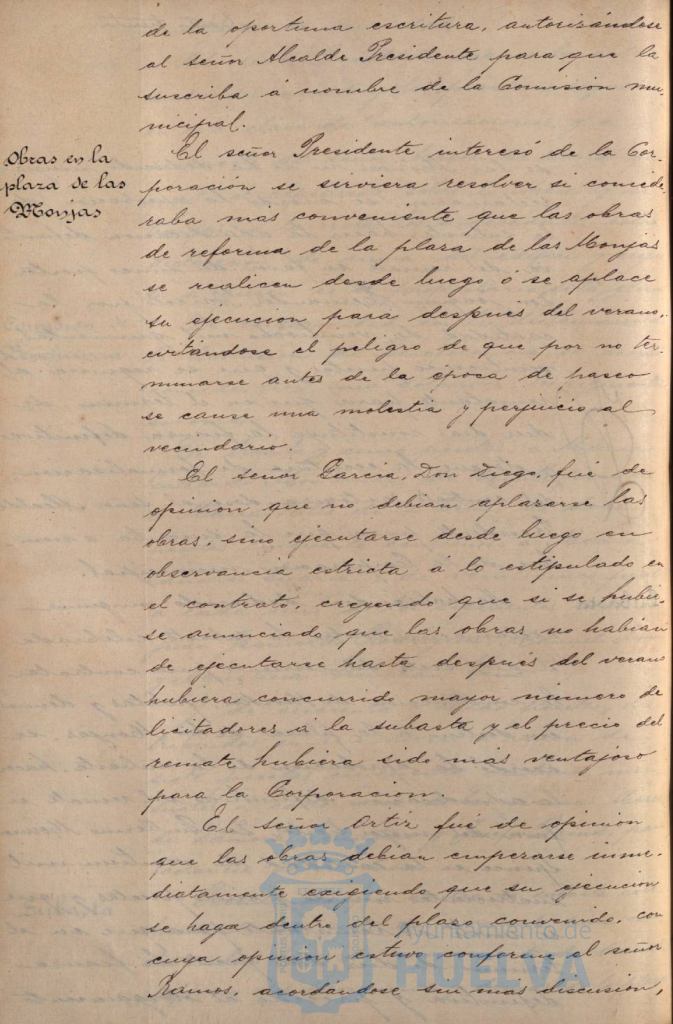 de la oportuna escritura, autorizándose
al señor Alcalde Presidente para que la
suscriba á nombre de la Comisión mu-
nicipal.
Obras en la
plaza de las
Monjas
El señor Presidente interesó de la Cor-
poración se sirviera resolver si conside-
raba más conveniente que las obras
de reforma de la plaza de las Monjas
se realicen desde luego ó se aplace
su ejecución para después del verano,
evitándose el peligro de que por no ter-
minarse antes de la época de paseo
se cause una molestia y perjuicio al
vecindario.
El señor García, Don Diego, fué de
opinion que no debian aplazarse las
obras, sino ejecutarse desde luego en
observancia estricta á lo estipulado en
el contrato, creyendo que si se hubie-
se anunciado que las obras no habían
de ejecutarse hasta después del verano
hubiera concurrido mayor número de
licitadores á la subasta y el precio del
remate hubiera sido más ventajoso
para la Corporación.
El señor Ortiz fué de opinion
que las obras debían empezarse inme-
diatamente exigiendo que su ejecución
se haga dentro del plazo convenido, con
cuya opinion estuvo conforme el señor
Ramos, acordándose sin más discusión,
Ayuntamiento de
HUELVA